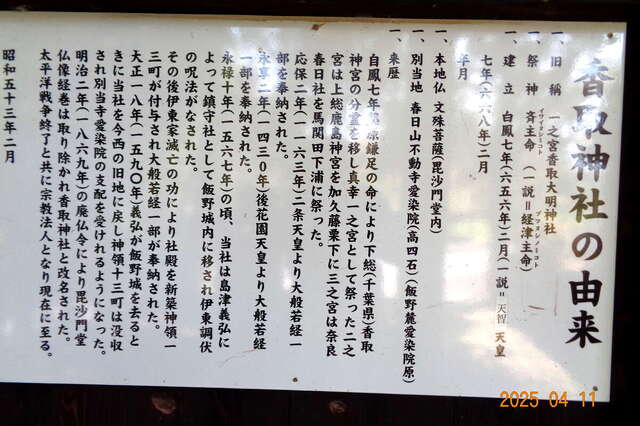 香取神社の由来
一、旧 称 一之宮香取大明神社
一、祭 神 斉主命(一説=経津主命)
イワイヌシノミコト フツヌシノミコト
一、建 立 白鳳七年(六五六年)三月(一説=天智天皇
七年(六六八年)二月
年月
一、本地仏 文殊菩薩(毘沙門堂内)
一、別当地 春日山不動寺愛染院(高四石)(飯野麓愛染院原)
一、来歴
白鳳七年藤原鎌足の命により下総(千葉県)香取
神宮の分霊を移し真幸一之宮として祭った二之
宮は上総鹿島神宮を加久藤栗下に三之宮は奈良
春日社を馬関田下浦に祭った。
応保二年(一一六三年)二条天皇より大般若経一
部を奉納された。
永享二年(一四三0年)後花園天皇より大般若経
一部を奉納された。
永禄十年(一五六七年)の頃、当社は島津義弘に
よって鎮守社として飯野城内に移され伊東調伏
の呪法がなされた。
その後伊東家滅亡の功により社殿を新築神領一
三町が付与され大般若経一部が奉納された。
大正一八年(一五九〇年)義弘が飯野城を去ると
きに当社を今西の旧地に戻し神領十三町は没収
され別当寺愛染院の支配を受けれるようになった。
明治二年(一八六九年)の廃仏令により毘沙門堂
仏像経巻は取り除かれ香取神社と改名された。
太平洋戦争終了と共に宗教法人となり現在に至る。
昭和五十三年二月
2025 04 11